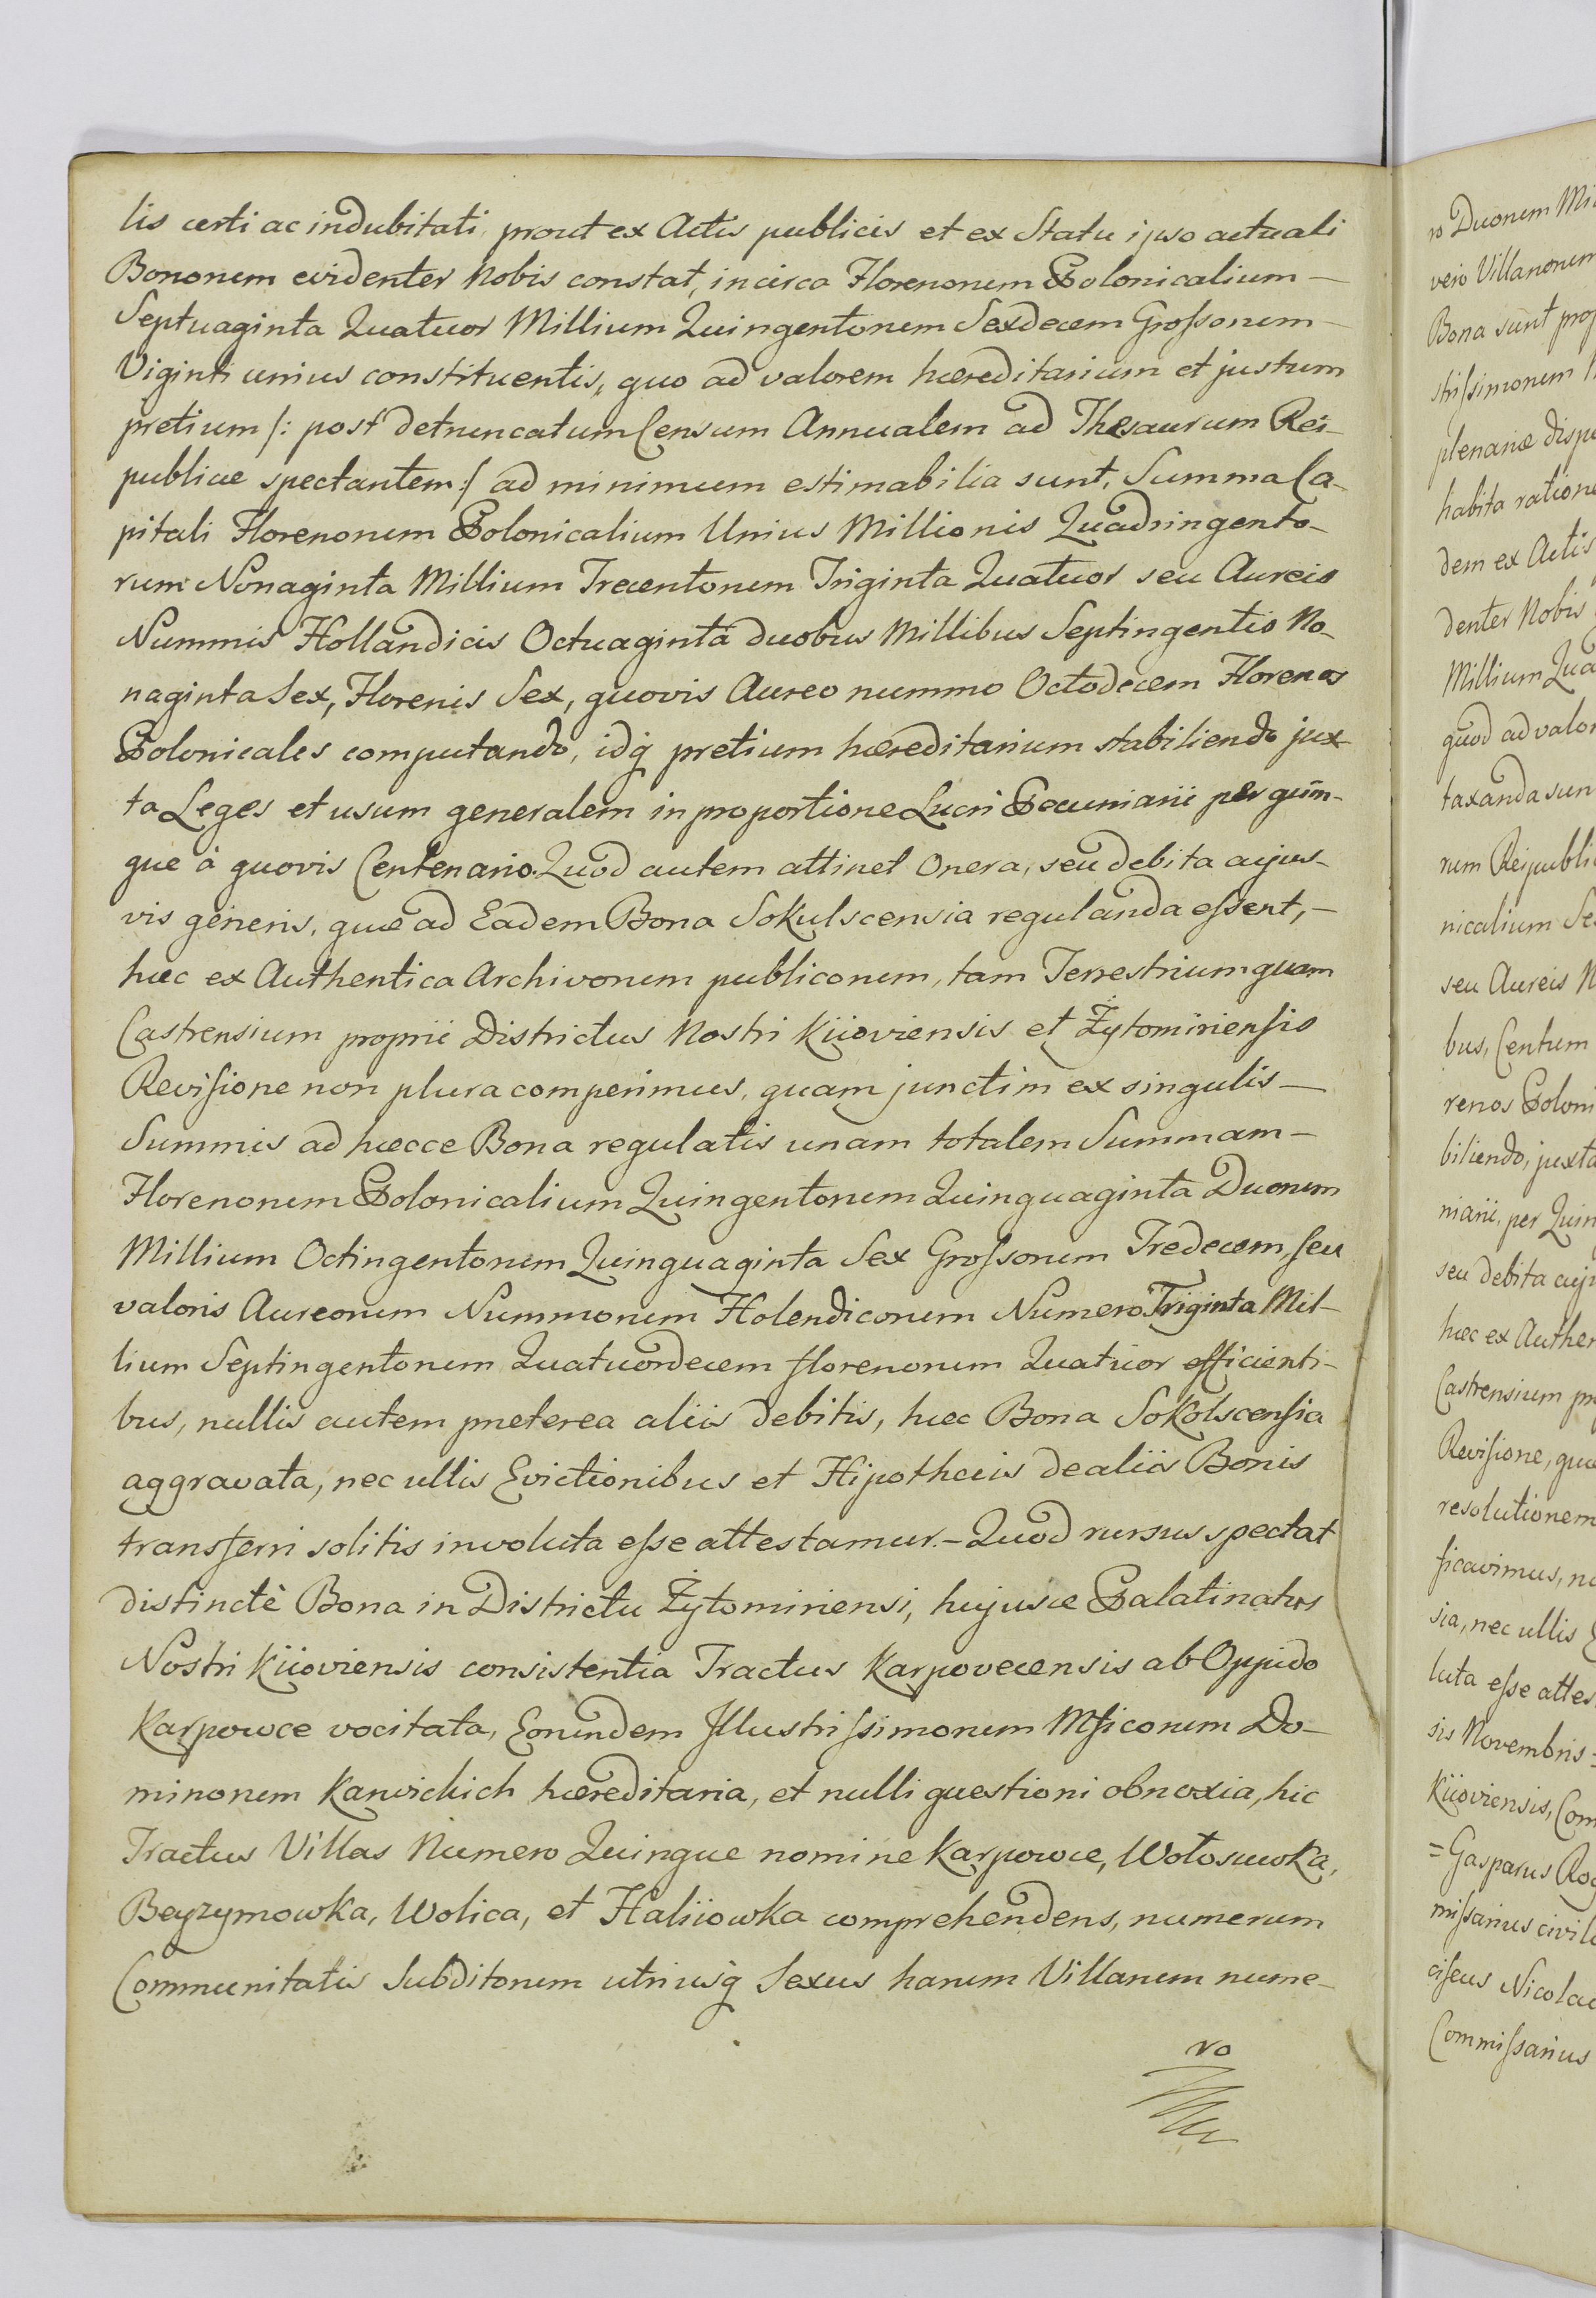 lis certi ac indubitati, prout ex Actis publicis et ex Statu ipso actuali
Bonorum evidenter Nobis constat, in circa Florenorum Polonicalium —
Septuaginta Quatuor Millium Quingentorum Sexdecem Grossorum —
Viginti unius constituentis, quo ad valorem hæreditarium et justum
pretium /: post detruncatum Censum Annualem ad Thesaurum Rei-
publicæ spectantem :/ ad minimum estimabilia sunt, Summa Ca-
pitali Florenorum Polonicalium Unius Millionis Quadringento-
rum Nonaginta Millium Trecentorum Triginta Quatuor seu Aureis
Nummis Hollandicis Octuaginta duobus Millibus Septingentis No-
naginta Sex, Florenis Sex, quovis Aureo nummo Octodecem Florenos
Polonicales computando, idq pretium hæreditarium stabiliendo jux-
ta Leges et usum generalem in proportione Lucri Pecuniarii per quin-
que à quovis Centenario. Quod autem attinet Onera, seu debita cujus-
vis generis, quæ ad Eadem Bona Sokulscensia regulanda essent, —
hæc ex Authentica Archivorum publicorum, tam Terrestrium quam
Castrensium proprii Districtus Nostri Kiioviensis et Żytomiriensis
Revisione non plura comperimus, quam junctim ex singulis —
Summis ad hæcce Bona regulatis unam totalem Summam —
Florenorum Polonicalium Quingentorum Quinquaginta Duorum
Millium Octingentorum Quinquaginta Sex Grossorum Tredecem, seu
valoris Aureorum Nummorum Holendicorum Numero Triginta Mil-
lium Septingentorum Quatuordecem florenorum Quatuor efficienti-
bus, nullis autem præterea aliis debitis, hæc Bona Sokolscensia
aggravata, nec ullis Evictionibus et Hipothecis de aliis Bonis
transferri solitis involuta esse attestamur. — Quod rursus spectat
distinctè Bona in Districtu Żytomiriensi, hujusce Palatinatus
Nostri Kiioviensis consistentia Tractus Karpovecensis ab Oppido
Karpowce vocitata, Eorundem Illustrissimorum Mficorum Do-
minorum Karwickich hæreditaria, et nulli questioni obnoxia, hic
Tractus Villas Numero Quinque nomine Karpowce, Wołosuwka,
Beyzymowka, Wolica, et Haliiowka comprehendens, numerum
Communitatis Subditorum utriusq Sexus harum Villarum nume-
ro
ro Duorum Mil
vero Villarorum
Bona sunt prop
strissimorum
plenariæ dispo
habita ratione
dem ex Actis
denter Nobis
Millium Qua
quod ad valor
taxanda sun
rum Reipubli
nicalium Se
seu Aureis N
bus, Centum
renos Poloni
biliendo, juxta
niarii, per Quin
seu debita cuju
hæc ex Authen
Castrensium pr
Revisione, quæ
resolutionem
ficavimus, n
sia, nec ullis
luta esse attes
sis Novembris
Kiioviensis, Com
= Gasparus Ro
missarius civil
ciscus Nicola
Commissarius